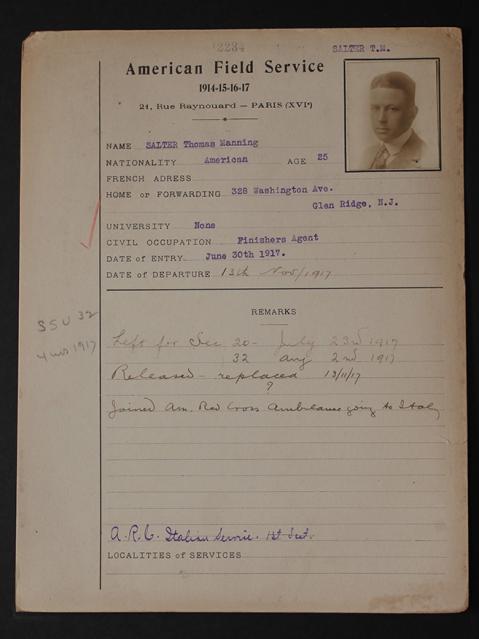 2234
SALTER T.M.
American Field Service
1914-15-16-17
21, Rue Raynouard — PARIS (XVIe)
NAME SALTER Thomas Manning
NATIONALITY American AGE 25
FRENCH ADRESS
HOME or FORWARDING 328 Washington Ave.
Glen Ridge, N.J.
UNIVERSITY None
CIVIL OCCUPATION Finishers Agent
DATE of ENTRY June 30th 1917.
DATE of DEPARTURE 13th Nov/1917
REMARKS
SSU 32
1917
Left for Sec 20 - July 23rd 1917
32 Aug 2nd 1917
Released - replaced 13/11/17
?
Joined Am. Red Cross Ambulance going to Italy
A.R.C. Italian Service. 1st Sect.
LOCALITIES of SERVICES